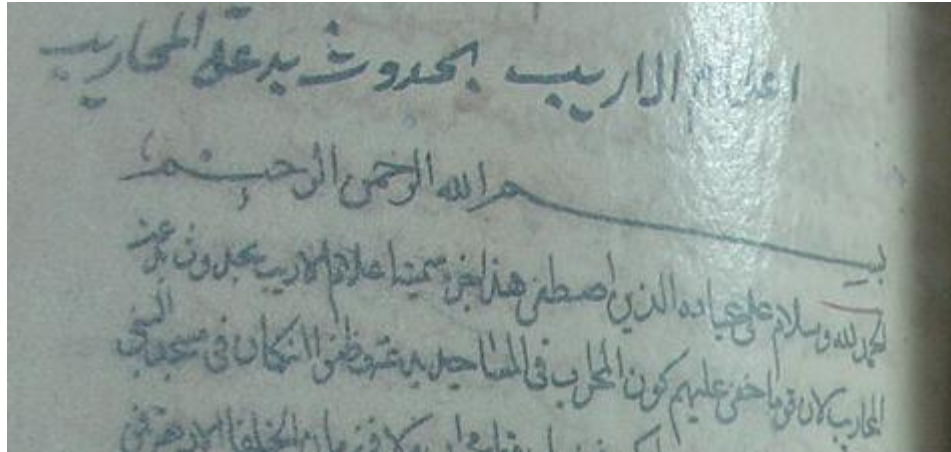 اعلام الاريب بحدوث بدعة المحاريب
بسم الله الرحمن الرحيم
الحمد لله وسلام على عباده الذين اصطفى هذا جزء سميته اعلام الاريب بحدوث بدعة
المحاريب لان قوما خفى عليهم كون المحراب فى المساجد بدعة وظنوا انه كان فى مسجد النبى
فى زمان الخلفا الاربعة